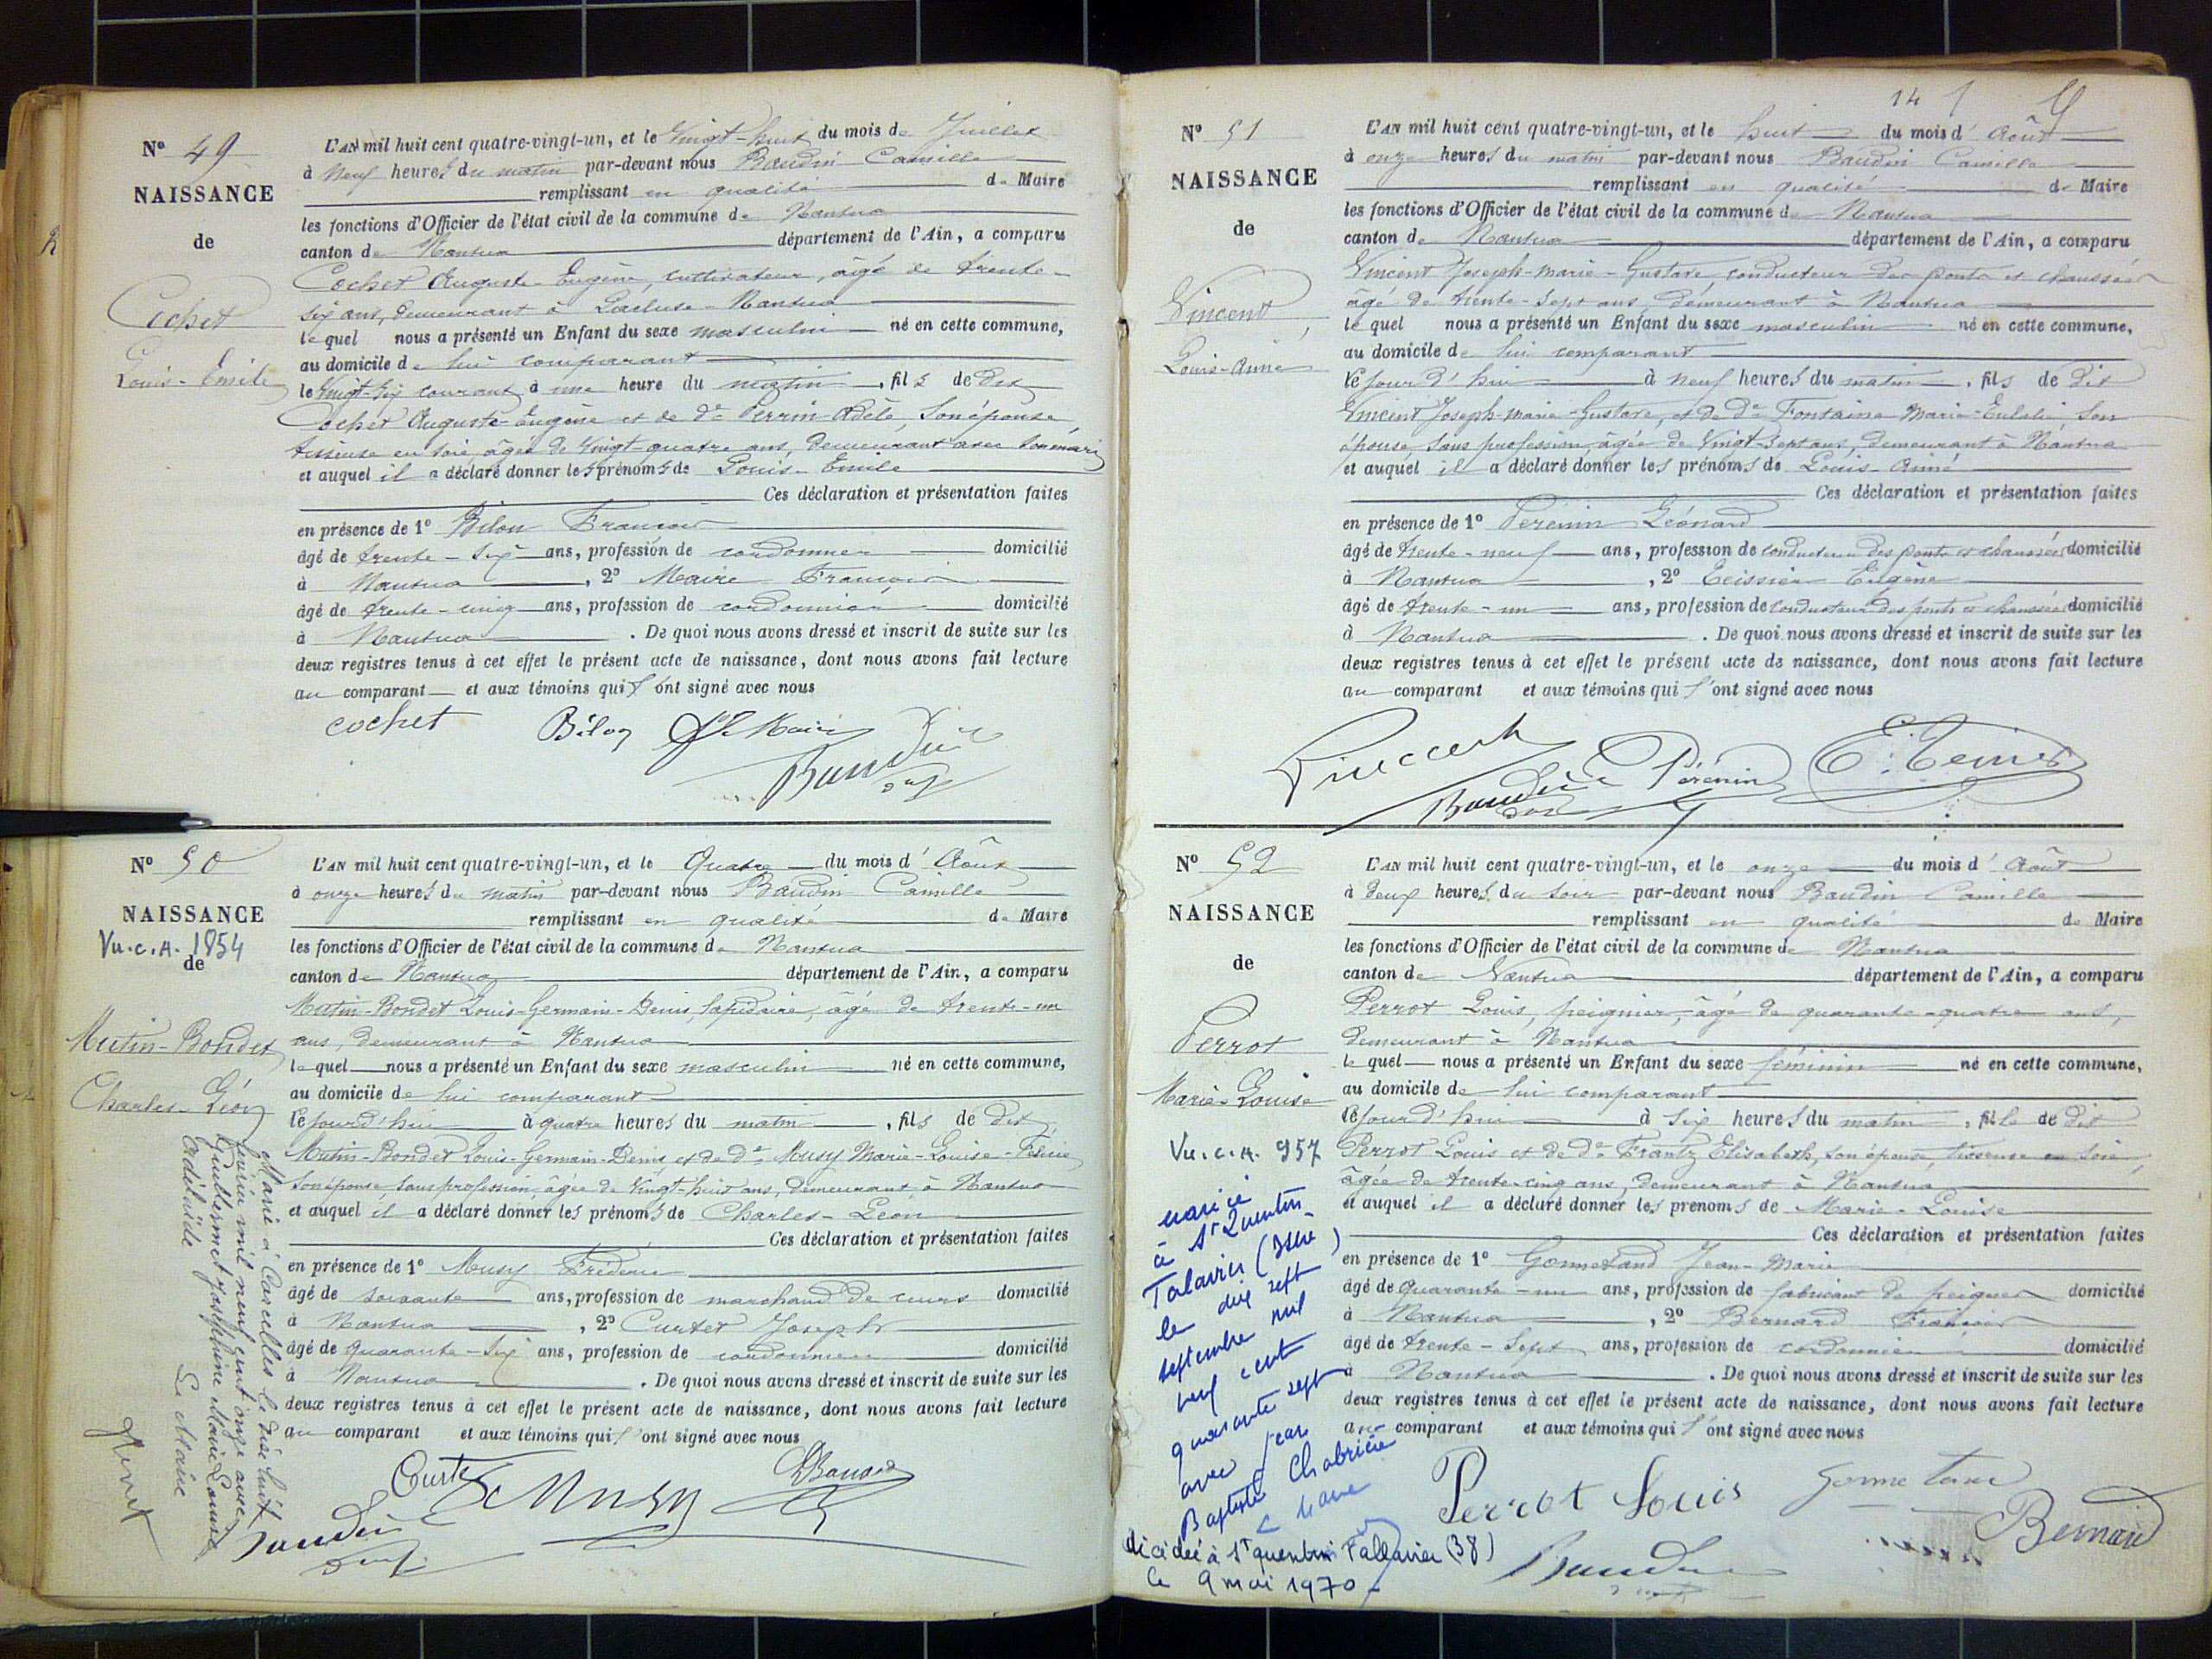 Nº 49
NAISSANCE
de
Cochet
Louis-Emile
L'AN mil huit cent quatre-vingt-un, et le Vingt-huit du mois de Juillet
à Neuf heures du matin par-devant nous Baudin Camille
remplissant en qualité de Maire
les fonctions d'Officier de l'état civil de la commune de Nantua
canton de Nantua département de l'Ain, a comparu
Cochet Auguste-Eugène, cultivateur, âgé de trente-
six ans, demeurant à Lacluse-Nantua
lequel nous a présenté un Enfant du sexe masculin né en cette commune,
au domicile de lui comparant
le Vingt-six courant à une heure du matin, fils de dit
Cochet Auguste-Eugène et de De Perrin Adèle, son épouse,
tisseuse en soie âgée de Vingt-quatre ans, demeurant avec son mari
et auquel il a déclaré donner les prénoms de Louis-Emile
Ces déclaration et présentation faites
en présence de 1º Bilon François
âgé de trente-six ans, profession de cordonnier domicilié
à Nantua, 2º Maire François
âgé de trente-cinq ans, profession de cordonnier domicilié
à Nantua. De quoi nous avons dressé et inscrit de suite sur les
deux registres tenus à cet effet le présent acte de naissance, dont nous avons fait lecture
au comparant et aux témoins qui ont signé avec nous
cochet Bilon Maire
Baudin
Nº 50
NAISSANCE
Vu.c.A. 1854
de
Mutin-Bondet
Charles-Léon
Marié à Carcelles le dix huit
mil neuf cent onze avec
Guillermet Joséphine Marie Louise
Adélaïde
Le Maire
L'AN mil huit cent quatre-vingt-un, et le Quatre du mois d'Août
à onze heures du matin par-devant nous Baudin Camille
remplissant en qualité de Maire
les fonctions d'Officier de l'état civil de la commune de Nantua
canton de Nantua département de l'Ain, a comparu
Mutin-Bondet Louis-Germain-Denis, lapidaire, âgé de trente-un
ans, demeurant à Nantua
lequel nous a présenté un Enfant du sexe masculin né en cette commune,
au domicile de lui comparant
le jour d'hui à quatre heures du matin, fils de dit
Mutin-Bondet Louis-Germain-Denis et de De Musy Marie-Louise-Félicie
son épouse, sans profession, âgée de Vingt-huit ans, demeurant à Nantua
et auquel il a déclaré donner les prénoms de Charles-Léon
Ces déclaration et présentation faites
en présence de 1º Musy Frédéric
âgé de soixante ans, profession de marchand de cuirs domicilié
à Nantua, 2º Curtet Joseph
âgé de Quarante-six ans, profession de cordonnier domicilié
à Nantua. De quoi nous avons dressé et inscrit de suite sur les
deux registres tenus à cet effet le présent acte de naissance, dont nous avons fait lecture
au comparant et aux témoins qui ont signé avec nous
Curtet Musy
Baudin
14
Nº 51
NAISSANCE
de
Vincent
Louis-Aimé
L'AN mil huit cent quatre-vingt-un, et le huit du mois d'Août
à onze heures du matin par-devant nous Baudin Camille
remplissant en qualité de Maire
les fonctions d'Officier de l'état civil de la commune de Nantua
canton de Nantua département de l'Ain, a comparu
Vincent Joseph-Marie-Gustave, conducteur des ponts et chaussées
âgé de trente-sept ans, demeurant à Nantua
lequel nous a présenté un Enfant du sexe masculin né en cette commune,
au domicile de lui comparant
le jour d'hui à neuf heures du matin, fils de dit
Vincent Joseph-Marie-Gustave, et de De Fontaine Marie-Eulalie, son
épouse, sans profession, âgée de Vingt-sept ans, demeurant à Nantua
et auquel il a déclaré donner les prénoms de Louis-Aimé
Ces déclaration et présentation faites
en présence de 1º Perénin Léonard
âgé de trente-neuf ans, profession de conducteur des ponts et chaussées domicilié
à Nantua, 2º Teissier Eugène
âgé de trente-un ans, profession de conducteur des ponts et chaussées domicilié
à Nantua. De quoi nous avons dressé et inscrit de suite sur les
deux registres tenus à cet effet le présent acte de naissance, dont nous avons fait lecture
au comparant et aux témoins qui ont signé avec nous
Vincent
Baudin Pérénin
Nº 52
NAISSANCE
de
Perrot
Marie-Louise
Vu.c.A. 957
mariée
à St Quentin
Talavier (Isère)
le dix sept
septembre mil
neuf cent
quarante sept
avec Jean
Baptiste Chabrière
décédée à St quentin Fallavier (38)
le 9 mai 1970
L'AN mil huit cent quatre-vingt-un, et le onze du mois d'Août
à deux heures du soir par-devant nous Baudin Camille
remplissant en qualité de Maire
les fonctions d'Officier de l'état civil de la commune de Nantua
canton de Nantua département de l'Ain, a comparu
Perrot Louis, peignier, âgé de quarante-quatre ans,
demeurant à Nantua
lequel nous a présenté un Enfant du sexe féminin né en cette commune,
au domicile de lui comparant
le jour d'hui à six heures du matin, fille de dit
Perrot Louis et de De Frantz Elisabeth, son épouse, tisseuse en soie,
âgée de trente-cinq ans, demeurant à Nantua
et auquel il a déclaré donner les prenoms de Marie-Louise
Ces déclaration et présentation faites
en présence de 1º Gonnetand Jean-Marie
âgé de Quarante-un ans, profession de fabricant de peignes domicilié
à Nantua, 2º Bernard François
âgé de trente-sept ans, profession de cordonnier domicilié
à Nantua. De quoi nous avons dressé et inscrit de suite sur les
deux registres tenus à cet effet le présent acte de naissance, dont nous avons fait lecture
au comparant et aux témoins qui ont signé avec nous
Perrot Louis
Bernard
Baudin